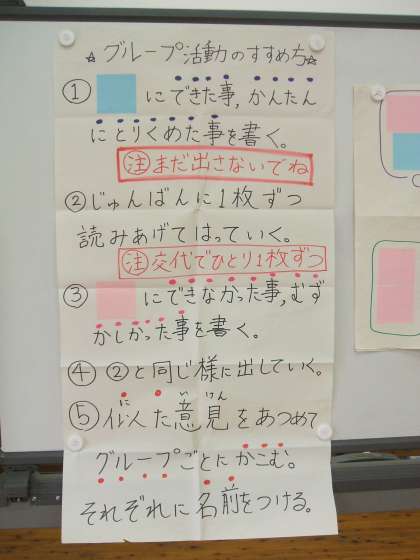 ☆グループ活動のすすめ方☆
① にできた事,かんたん
にとりくめた事を書く。
注 まだ出さないでね
②じゅんばんに1枚ずつ
読みあげてはっていく。
注 交代でひとり1枚ずつ
③ にできなかった事,むず
かしかった事を書く。
④②と同じ様に出していく。
⑤似た意見をあつめて
に い けん
グループごとにかこむ。
それぞれに名前をつける。